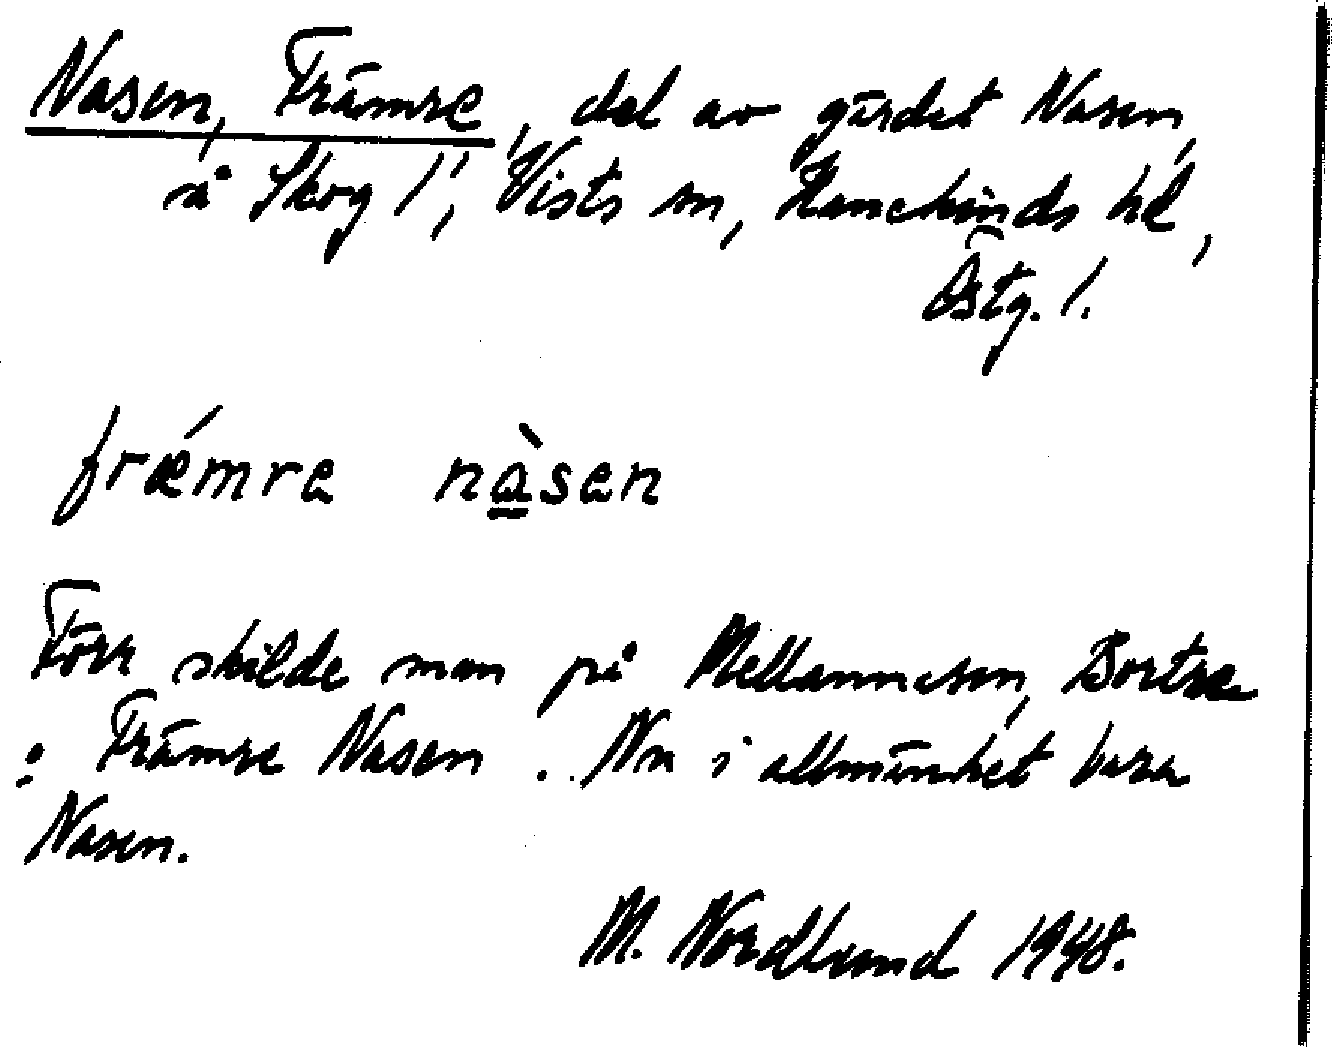 Nasen, Främre, del av gärdet Nasen,
å Skog 1¹, Vists sn, Hanekinds hd,
Östg. l.
frǽmre nàsen
Förr skilde man på Mellannasen, Bortre
o Främre Nasen. Nu i allmänhet bara
Nasen.
M. Nordlund 1948.